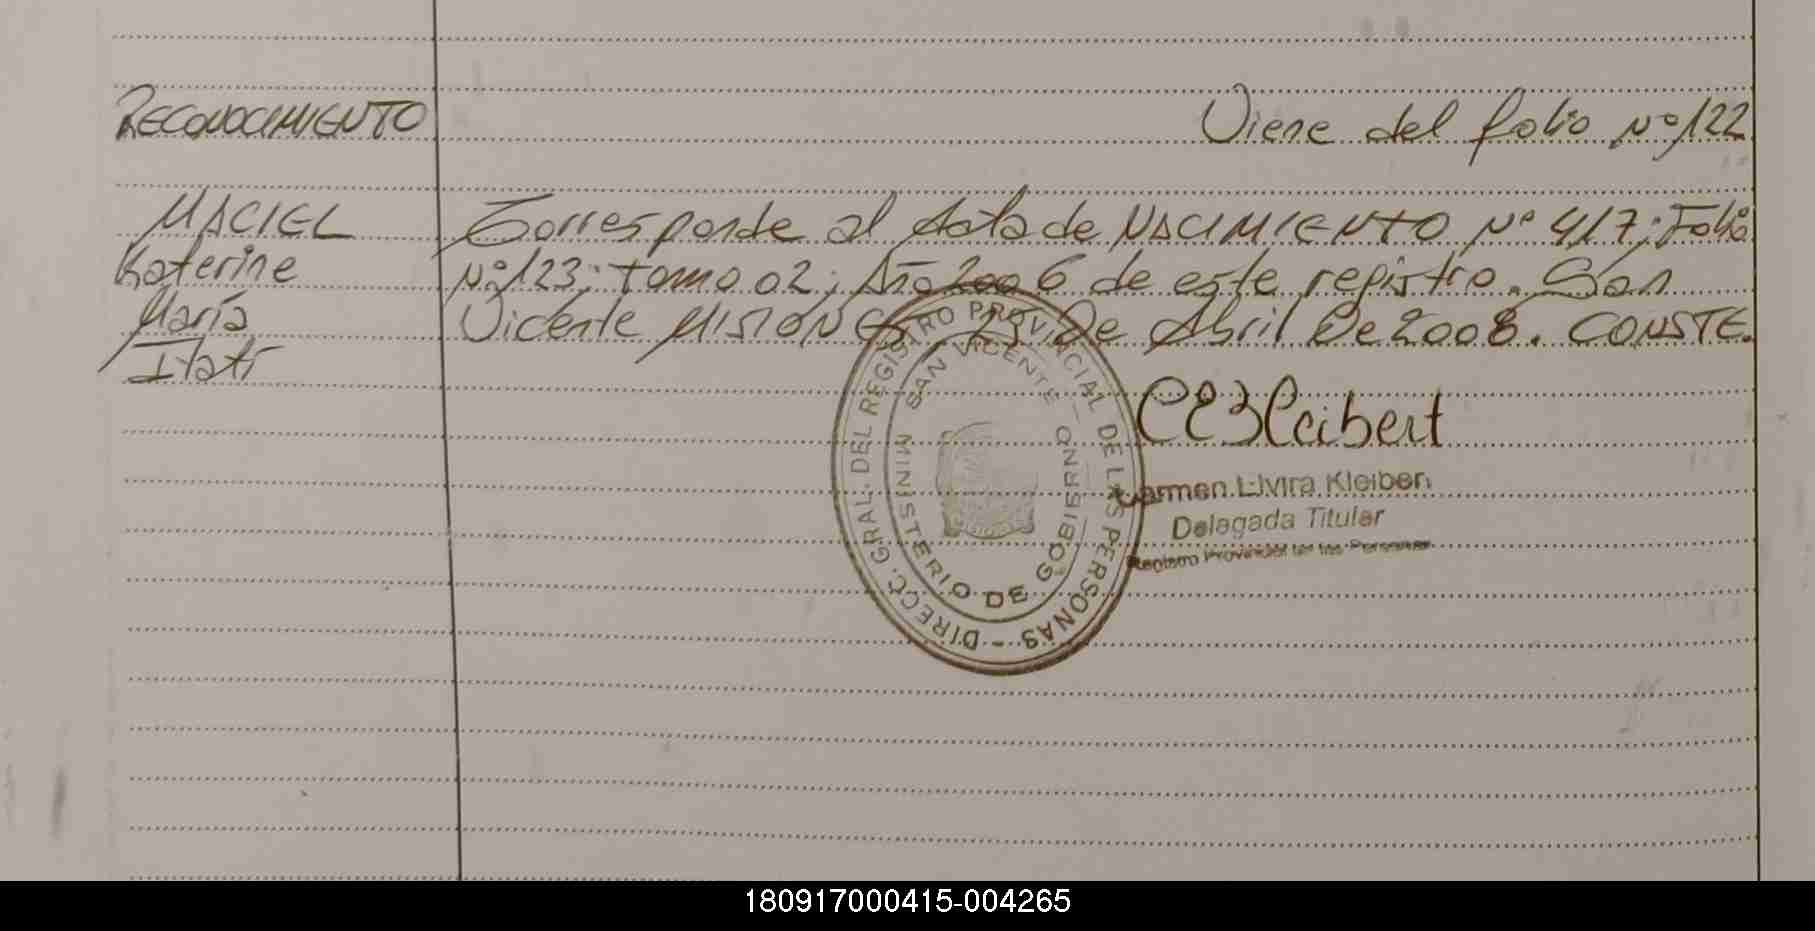 RECONOCIMIENTO
Viene del folio Nº 122
MACIEL
Katerine
María
Itatí
Corresponde al Acta de NACIMIENTO Nº 417; Folio
Nº 123; tomo 02; Año 2006 de este registro. San
Vicente MISIONES, De Abril De 2008. CONSTE.
DIRECC. GRAL. DEL REGISTRO PROVINCIAL DE LAS PERSONAS -
SAN VICENTE -
MINISTERIO DE GOBIERNO
Carmen Elvira Kleibert
Delegada Titular
Registro Provincial de las Personas
180917000415-004265